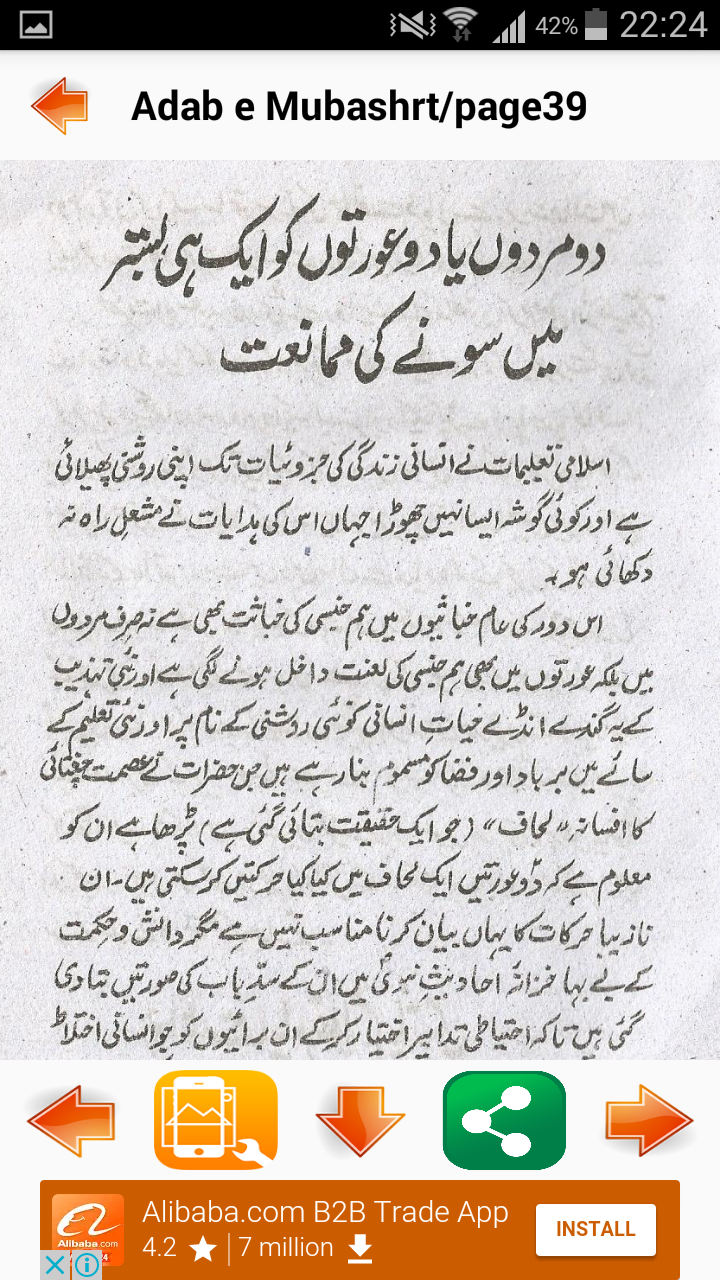 42% 22:24
Adab e Mubashrt/page39
دو مردوں یا دو عورتوں کو ایک ہی بستر
میں سونے کی ممانعت
اسلامی تعلیمات نے انسانی زندگی کی جزوئیات تک اپنی روشنی پھیلائی
ہے اور کوئی گوشہ ایسا نہیں چھوڑا جہاں اس کی ہدایات نے مشعل راہ نہ
دکھائی ہو۔
اس دور کی عام خباثیوں میں ہم جنسی کی خباثت بھی ہے نہ صرف مردوں
میں بلکہ عورتوں میں بھی ہم جنسی کی لعنت داخل ہونے لگی ہے اور نئی تہذیب
کے یہ گندے انڈے حیاتِ انسانی کو نئی روشنی کے نام پر اور نئی تعلیم کے
سائے میں برباد اور فضا کو مسموم بنا رہے ہیں جن حضرات نے عصمت چغتائی
کا افسانہ "لحاف" (جو ایک حقیقت بتائی گئی ہے) پڑھا ہے ان کو
معلوم ہے کہ دو عورتیں ایک لحاف میں کیا کیا حرکتیں کر سکتی ہیں۔ ان
نازیبا حرکات کا یہاں بیان کرنا مناسب نہیں ہے مگر دانش و حکمت
کے بے بہا خزانہ احادیثِ نبوی میں ان کے سدِّ باب کی صورتیں بتا دی
گئی ہیں تاکہ احتیاطی تدابیر اختیار کر کے ان برائیوں کو جو انسانی اختلاط
Alibaba.com B2B Trade App
4.2 7 million
INSTALL
Alibaba.com